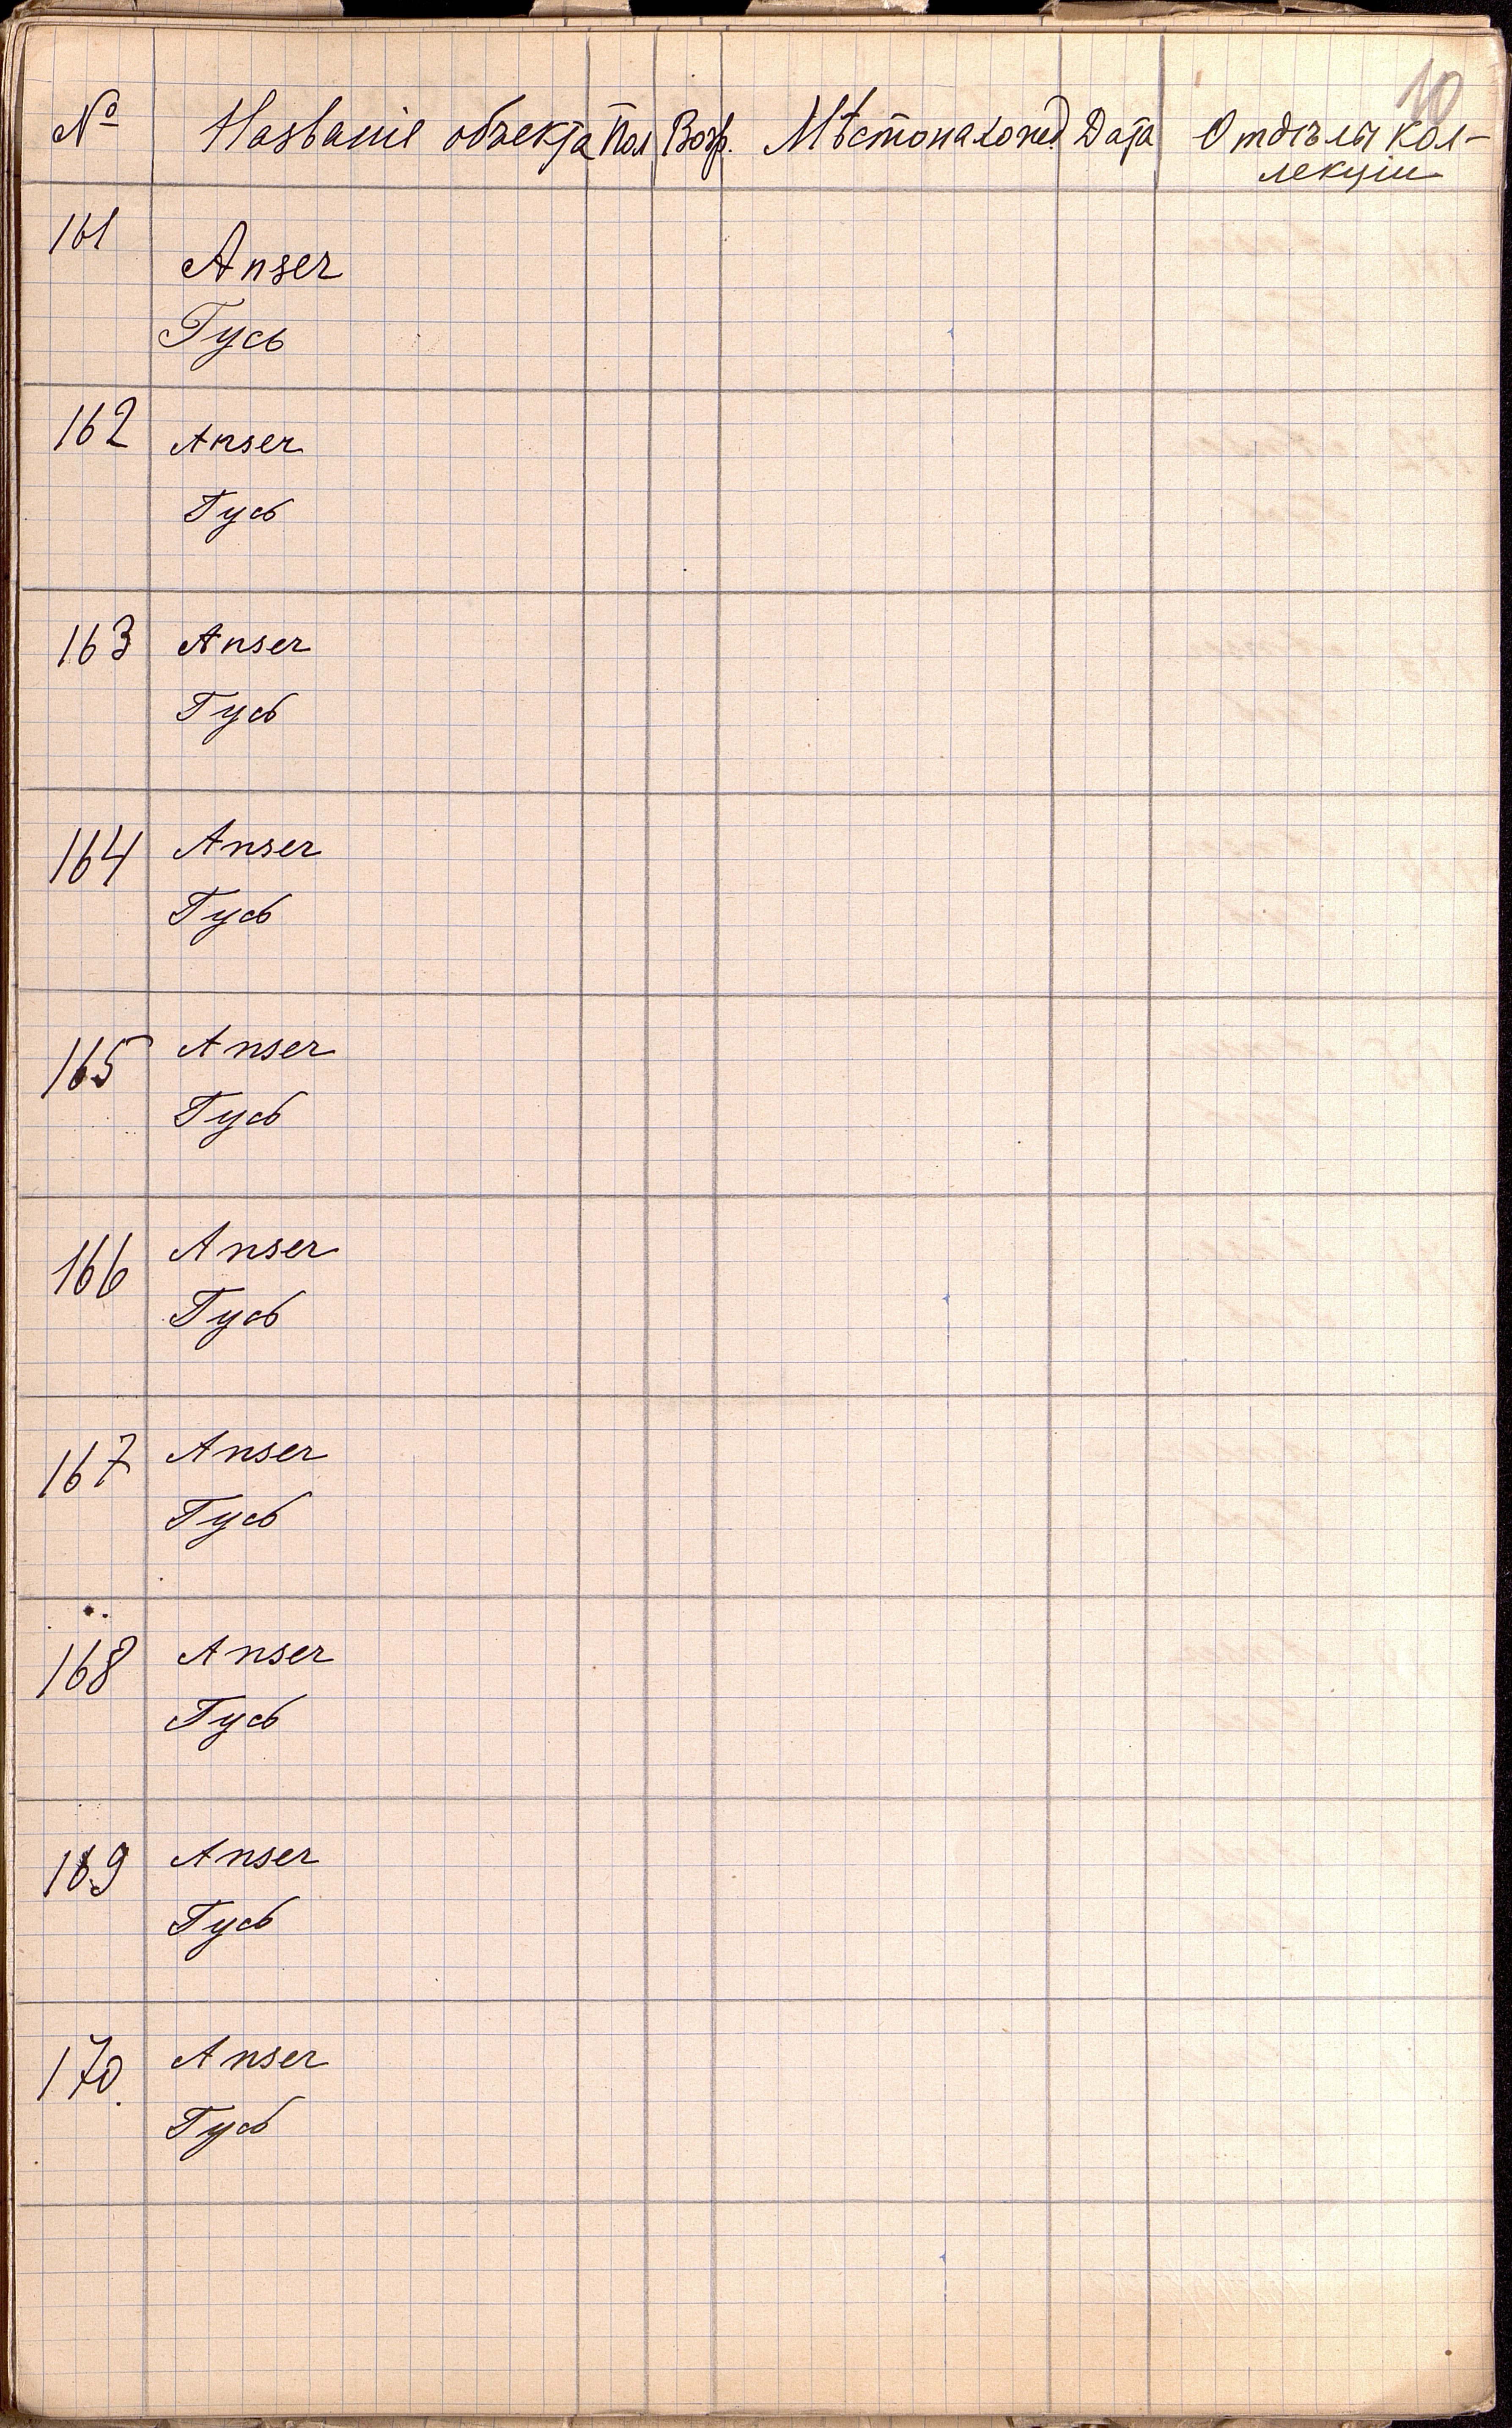 10
№ Названіе объекта Пол Возр. Мѣстонахожд Дата Отдѣлы кол-
лекціи
161 Anser
Гусь
162 Anser
Гусь
163 Anser
Гусь
164 Anser
Гусь
165 Anser
Гусь
166 Anser
Гусь
167 Anser
Гусь
168 Anser
Гусь
169 Anser
Гусь
170. Anser
Гусь